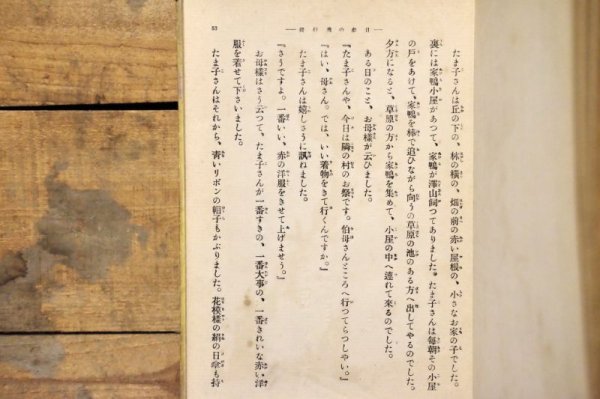 53
たま子さんは丘の下の、林の橫の、畑の前の赤い屋根の、小さなお家の子でした。
裏には家鴨小屋があつて、家鴨が澤山飼つてありました。たま子さんは毎朝その小屋
の戸をあけて、家鴨を棒で追ひながら向うの草原の池のある方へ出してやるのでした。
夕方になると、草原の方から家鴨を集めて、小屋の中へ連れて來るのでした。
ある日のこと、お母樣が云ひました。
『たま子さんや、今日は隣の村のお祭です。伯母さんところへ行つてらつしやい。』
『はい、母さん。では、いい着物をきて行くんですか。』
たま子さんは嬉しさうに訊ねました。
『さうですよ。一番いい、赤の洋服をきせて上げませう。』
お母樣はさう云つて、たま子さんが一番すきの、一番大事の、一番きれいな赤い洋
服を着せて下さいました。
たま子さんはそれから、靑いリボンの帽子もかぶりました。花模樣の絹の日傘も持